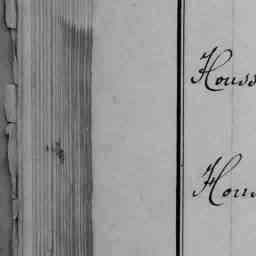 Houss
Hous